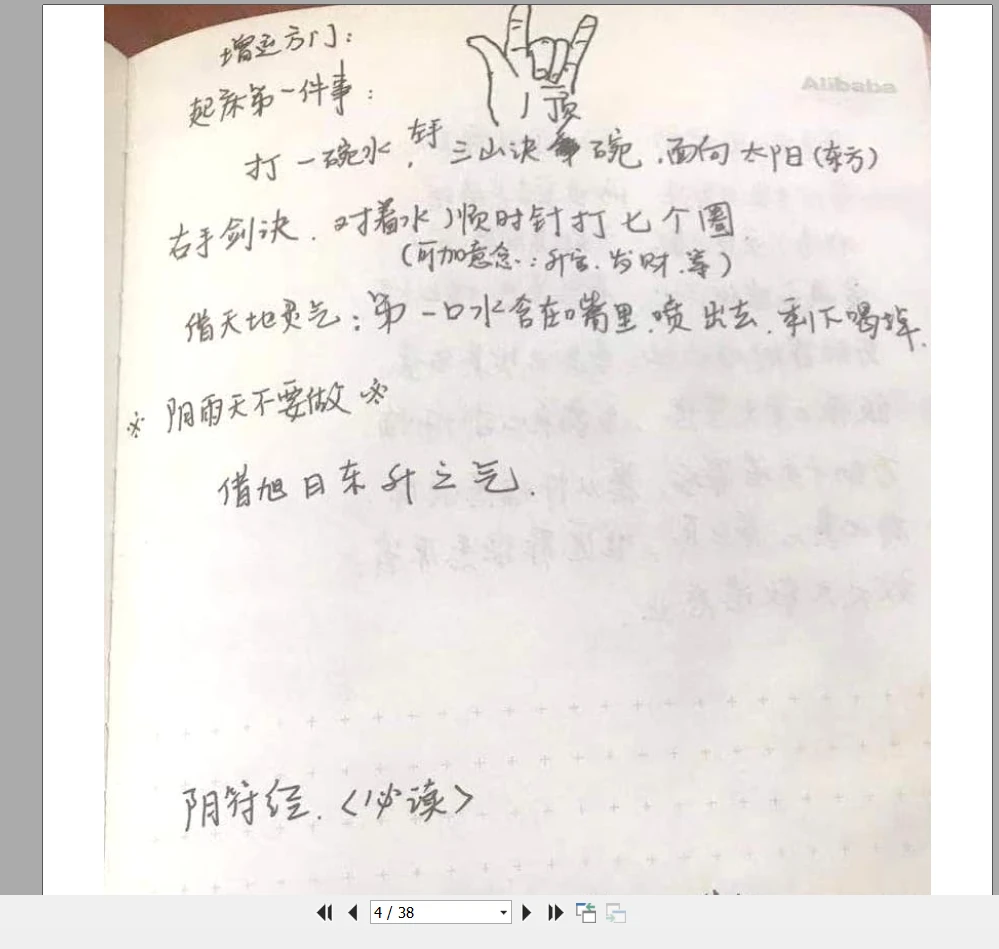 增运方门:
起床第一件事:
顶
Alibaba
打一碗水,左手三山诀 碗,面向太阳(东方)
右手剑诀.对着水顺时针打七个圈
(可加意念:升官.发财.等)
借天地灵气:第一口水含在嘴里.喷出去.剩下喝掉.
※ 阴雨天不要做 ※
借旭日东升之气.
阴符经.<必读>
4 / 38